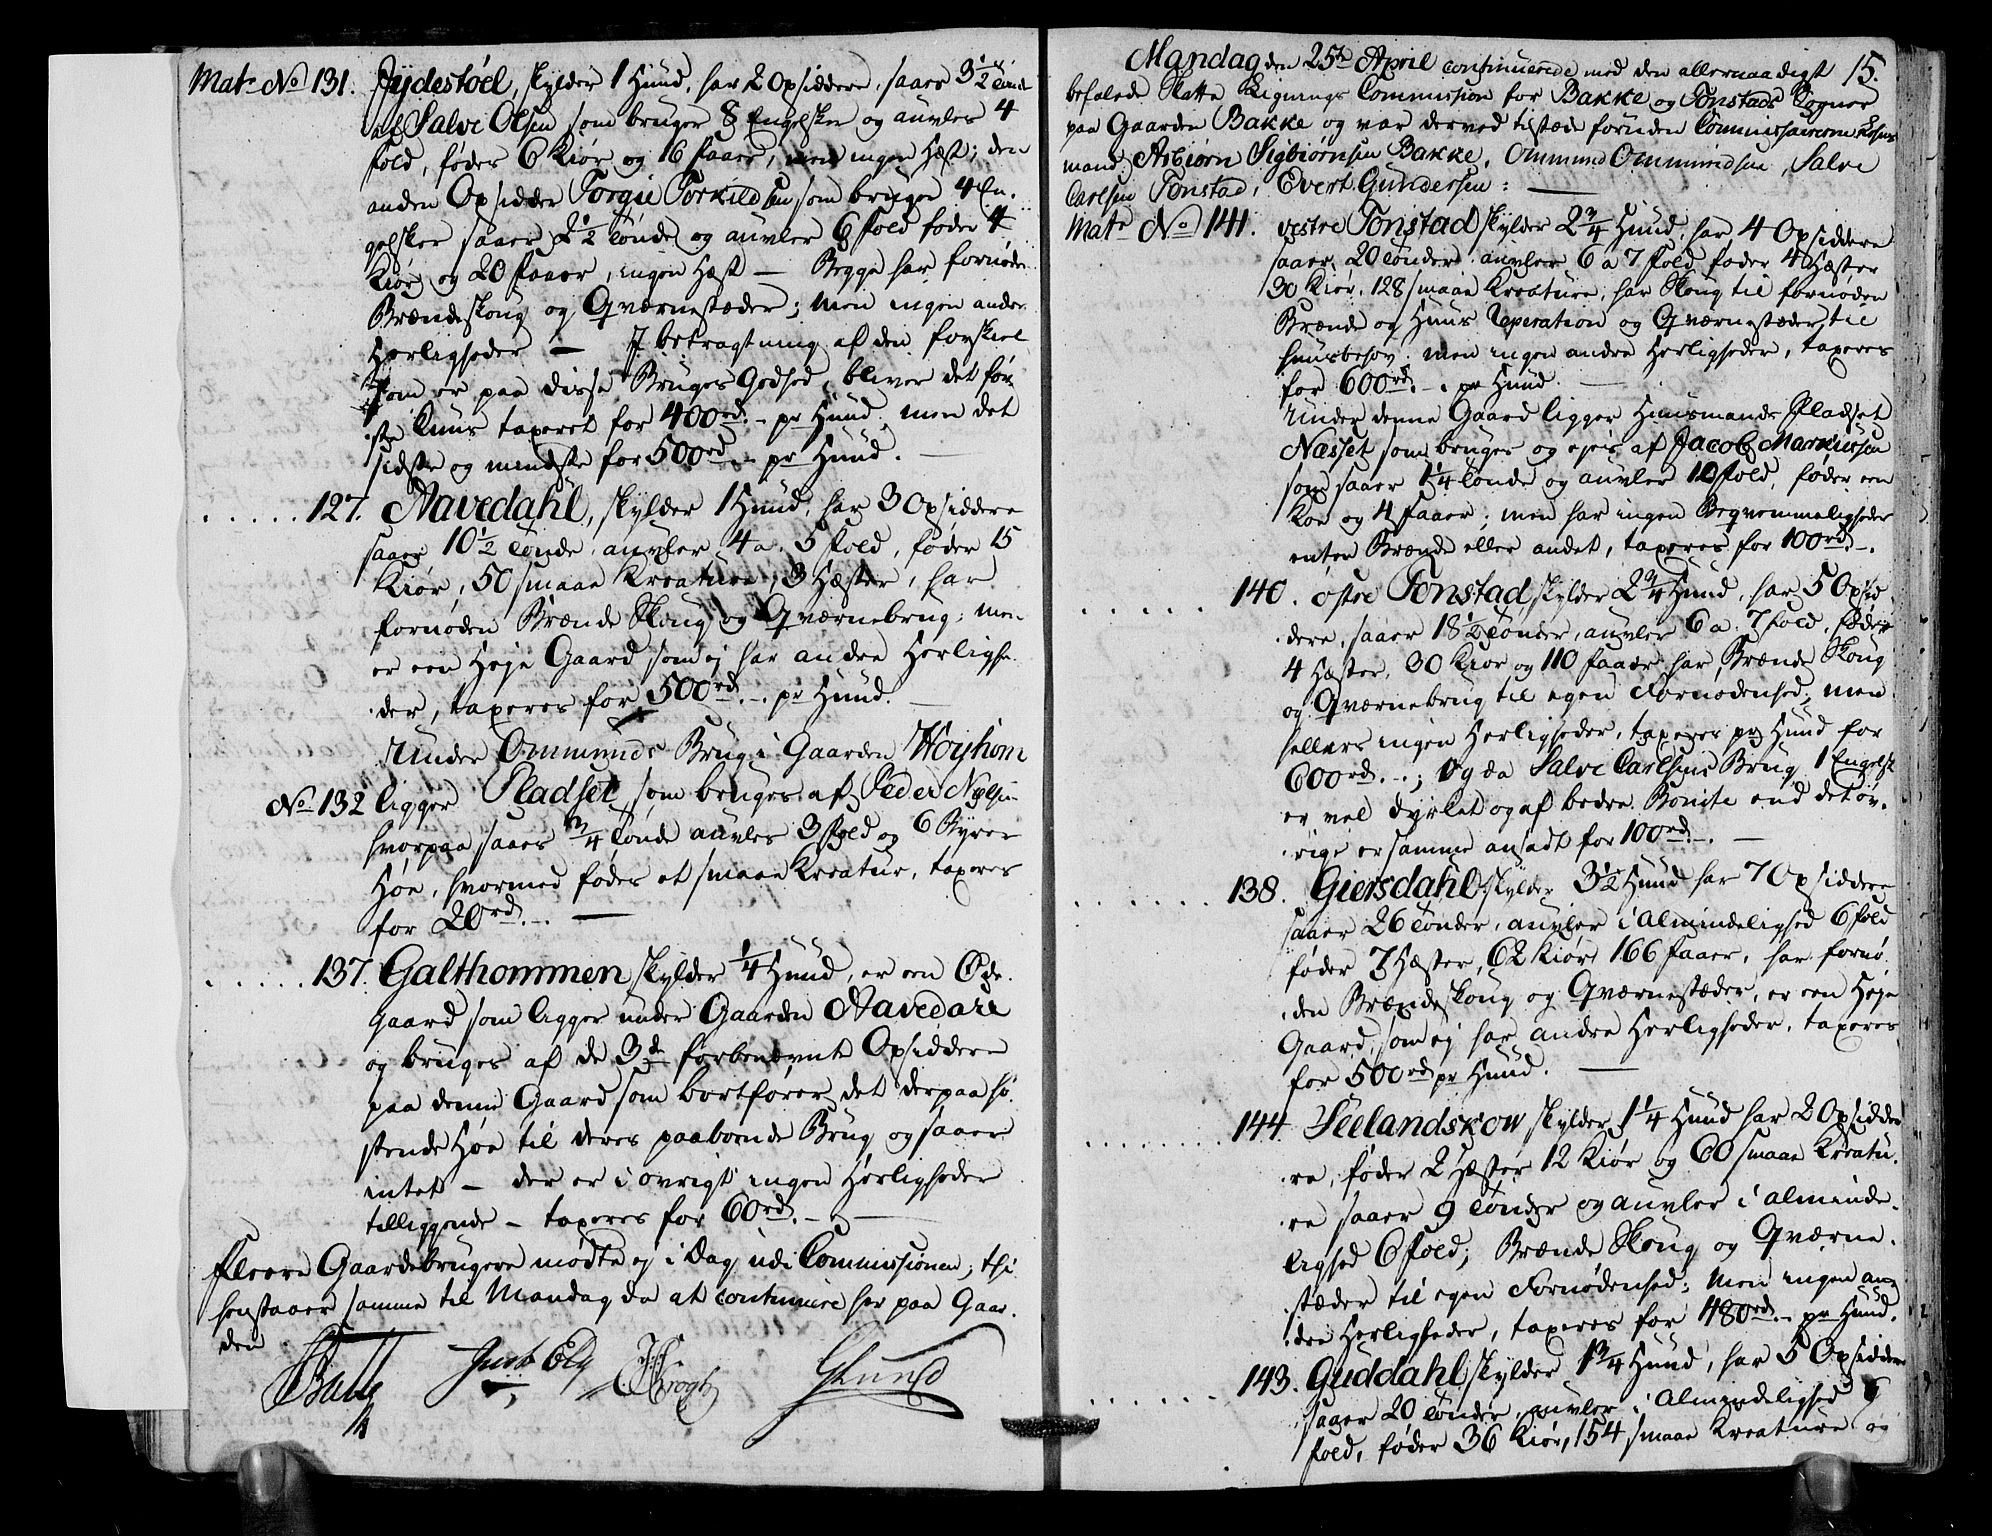 Matr No 131. Jydestöel, skylder 1 Hund, har 2 Opsiddere, saaer 3 1/2 Tønde
af Salve Olsen som bruger 8 Engelsker og auvler 4
fold, föder 6 Kiör og 16 Faaer, men ingen Hæst; den
anden Opsidder Torgie Torkildsen som bruger 4 En-
gelsker saaer 2 1/2 Tönde og auvler 6 fold föder 4
Kiör og 20 Faaer, ingen Hæst — Begge har fornöden
Brændeskoug og Qværnestæder; men ingen andre
Herligheder — I betragtning af den forskiel
som er paa disse Bruges Godhed, bliver det för-
ste Kuns taxeret for 400rd.-. pr Hund, men det
sidste og mindste for 500rd.-. pr Hund. —
. . . . . 127. Aavedahl, skylder 1 Hund, har 3 Opsiddere
saaer 10 1/2 Tönde, auvler 4 a 5 fold, föder 15
Kiör, 50 smaae Kreature, 3 Hæster, har
fornöden Brænde Skoug og Qværnebrug, men
er een Heje Gaard som ej har andre Herlighe-
der, taxeres for 500rd.-. pr Hund. —
Under Ommunds Brug i Gaarden Höyhom
No 132 ligger Pladset som bruges af Peder
hvorpaa saaes 3/4 Tönde auvles 3 fold og 6 Byrer
Höe, hvormed födes et smaae Kreatur, taxeres
for 20rd.-. —
. . . . . 137. Galthommen skylder 1/4 Hund, er een Öde-
gaard som ligger under Gaarden Aavedahl
og bruges af de 3de forbenævnte Opsiddere
paa denne Gaard som bortförer det derpaa hö-
stende Höe til deres paaboende Brug og saaer
intet — der er i övrigt ingen Herligheder
tilliggende — taxeres for 60rd.-. —
Fleere Gaardebrugere mödte ej i Dag udi Commissionen, thi
henstaaer samme til Mandag da at continuere her paa Gaar-
den
Jacob Eeg Krogh GLund
Mandag den 25de April continuerede med den allernaadigst 15.
befalede Skatte Lignings Commission for Bakke og Tonstads Sogner
paa Gaarden Bakke og var derved tilstæde foruden Commissairerne Lehns-
mand Asbiörn Sigbiörnsen Bakke, Ommund Ommundsen, Salve
Carlsen Tonstad, Evert Gundersen: —
Matr No 141. vestre Tonstad skylder 2 3/4 Hund, har 4 Opsiddere
saaer 20 Tönder, auvler 6 a 7 fold, föder 4 Hæster
30 Kiör, 128 smaae Kreature, har Skoug til fornöden
Brænde og Huus Reperation og Qværnestæder til
huusbehov, men ingen andre Herligheder, taxeres
for 600rd.-. pr Hund. —
Under denne Gaard ligger Huusmands Pladset
Næsset som bruges og ejes af Jacob Markussen
som saaer 1 1/4 Tönde og auvler 10 fold, föder een
Koe og 4 Faaer; men har ingen Beqvemmeligheder
enten Brænde eller andet, taxeres for 100rd.-.
. . . . . 140. östre Tonstad skylder 2 3/4 Hund, har 5 Opsid-
dere, saaer 18 1/2 Tönder, auvler 6 a 7 fold, föder
4 Hæster, 30 Kiör og 110 Faaer har Brænde Skoug
og Qværnebrug til egen Fornödenhed, men
ellers ingen Herligheder, taxeres pr Hund for
600rd.-.; Og da Salve Carlsens Brug 1 Engelsk
er vel dyrket og af bedre Bonite end det öv-
rige er samme ansadt for 100rd.-. —
. . . . . . 138. Giersdahl skylder 3 1/2 Hund har 7 Opsiddere
saaer 26 Tönder, auvler i Almindelighed 6 fold
föder 7 Hæster, 62 Kiör 166 Faaer, har fornö-
den Brændeskoug og Qværnestæder, er een Heje
Gaard, som ej har andre Herligheder, taxeres
for 500rd pr Hund. —
. . . . . . 144. Seelandskow skylder 1 1/4 Hund har 2 Opsidde-
re, föder 2 Hæster 12 Kiör og 60 smaae Kreatu-
re saaer 9 Tönder og auvler i alminde-
lighed 6 fold; Brænde Skoug og Qværne-
stæder til egen Fornödenhed; Men ingen an-
dre Herligheder, taxeres for 480rd.-. pr Hund.
. . . . . 143. Guddahl skylder 1 3/4 Hund, har 5 Opsiddere
saaer 20 Tönder, auvler i Almindelighed 6
fold, föder 36 Kiör, 154 smaae Kreature og